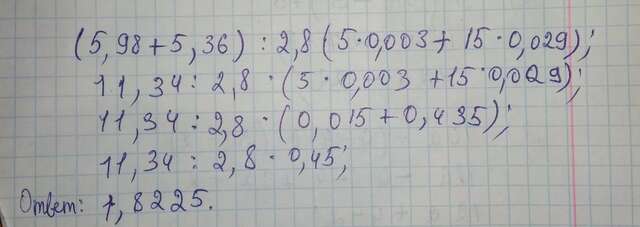 (5,98+5,36) : 2,8 (5·0,003+ 15·0,029);
11,34 : 2,8 · (5 · 0,003 +15·0,029);
11,34 : 2,8 · (0,015+0,435);
11,34 : 2,8 · 0,45;
Ответ: 1,8225.